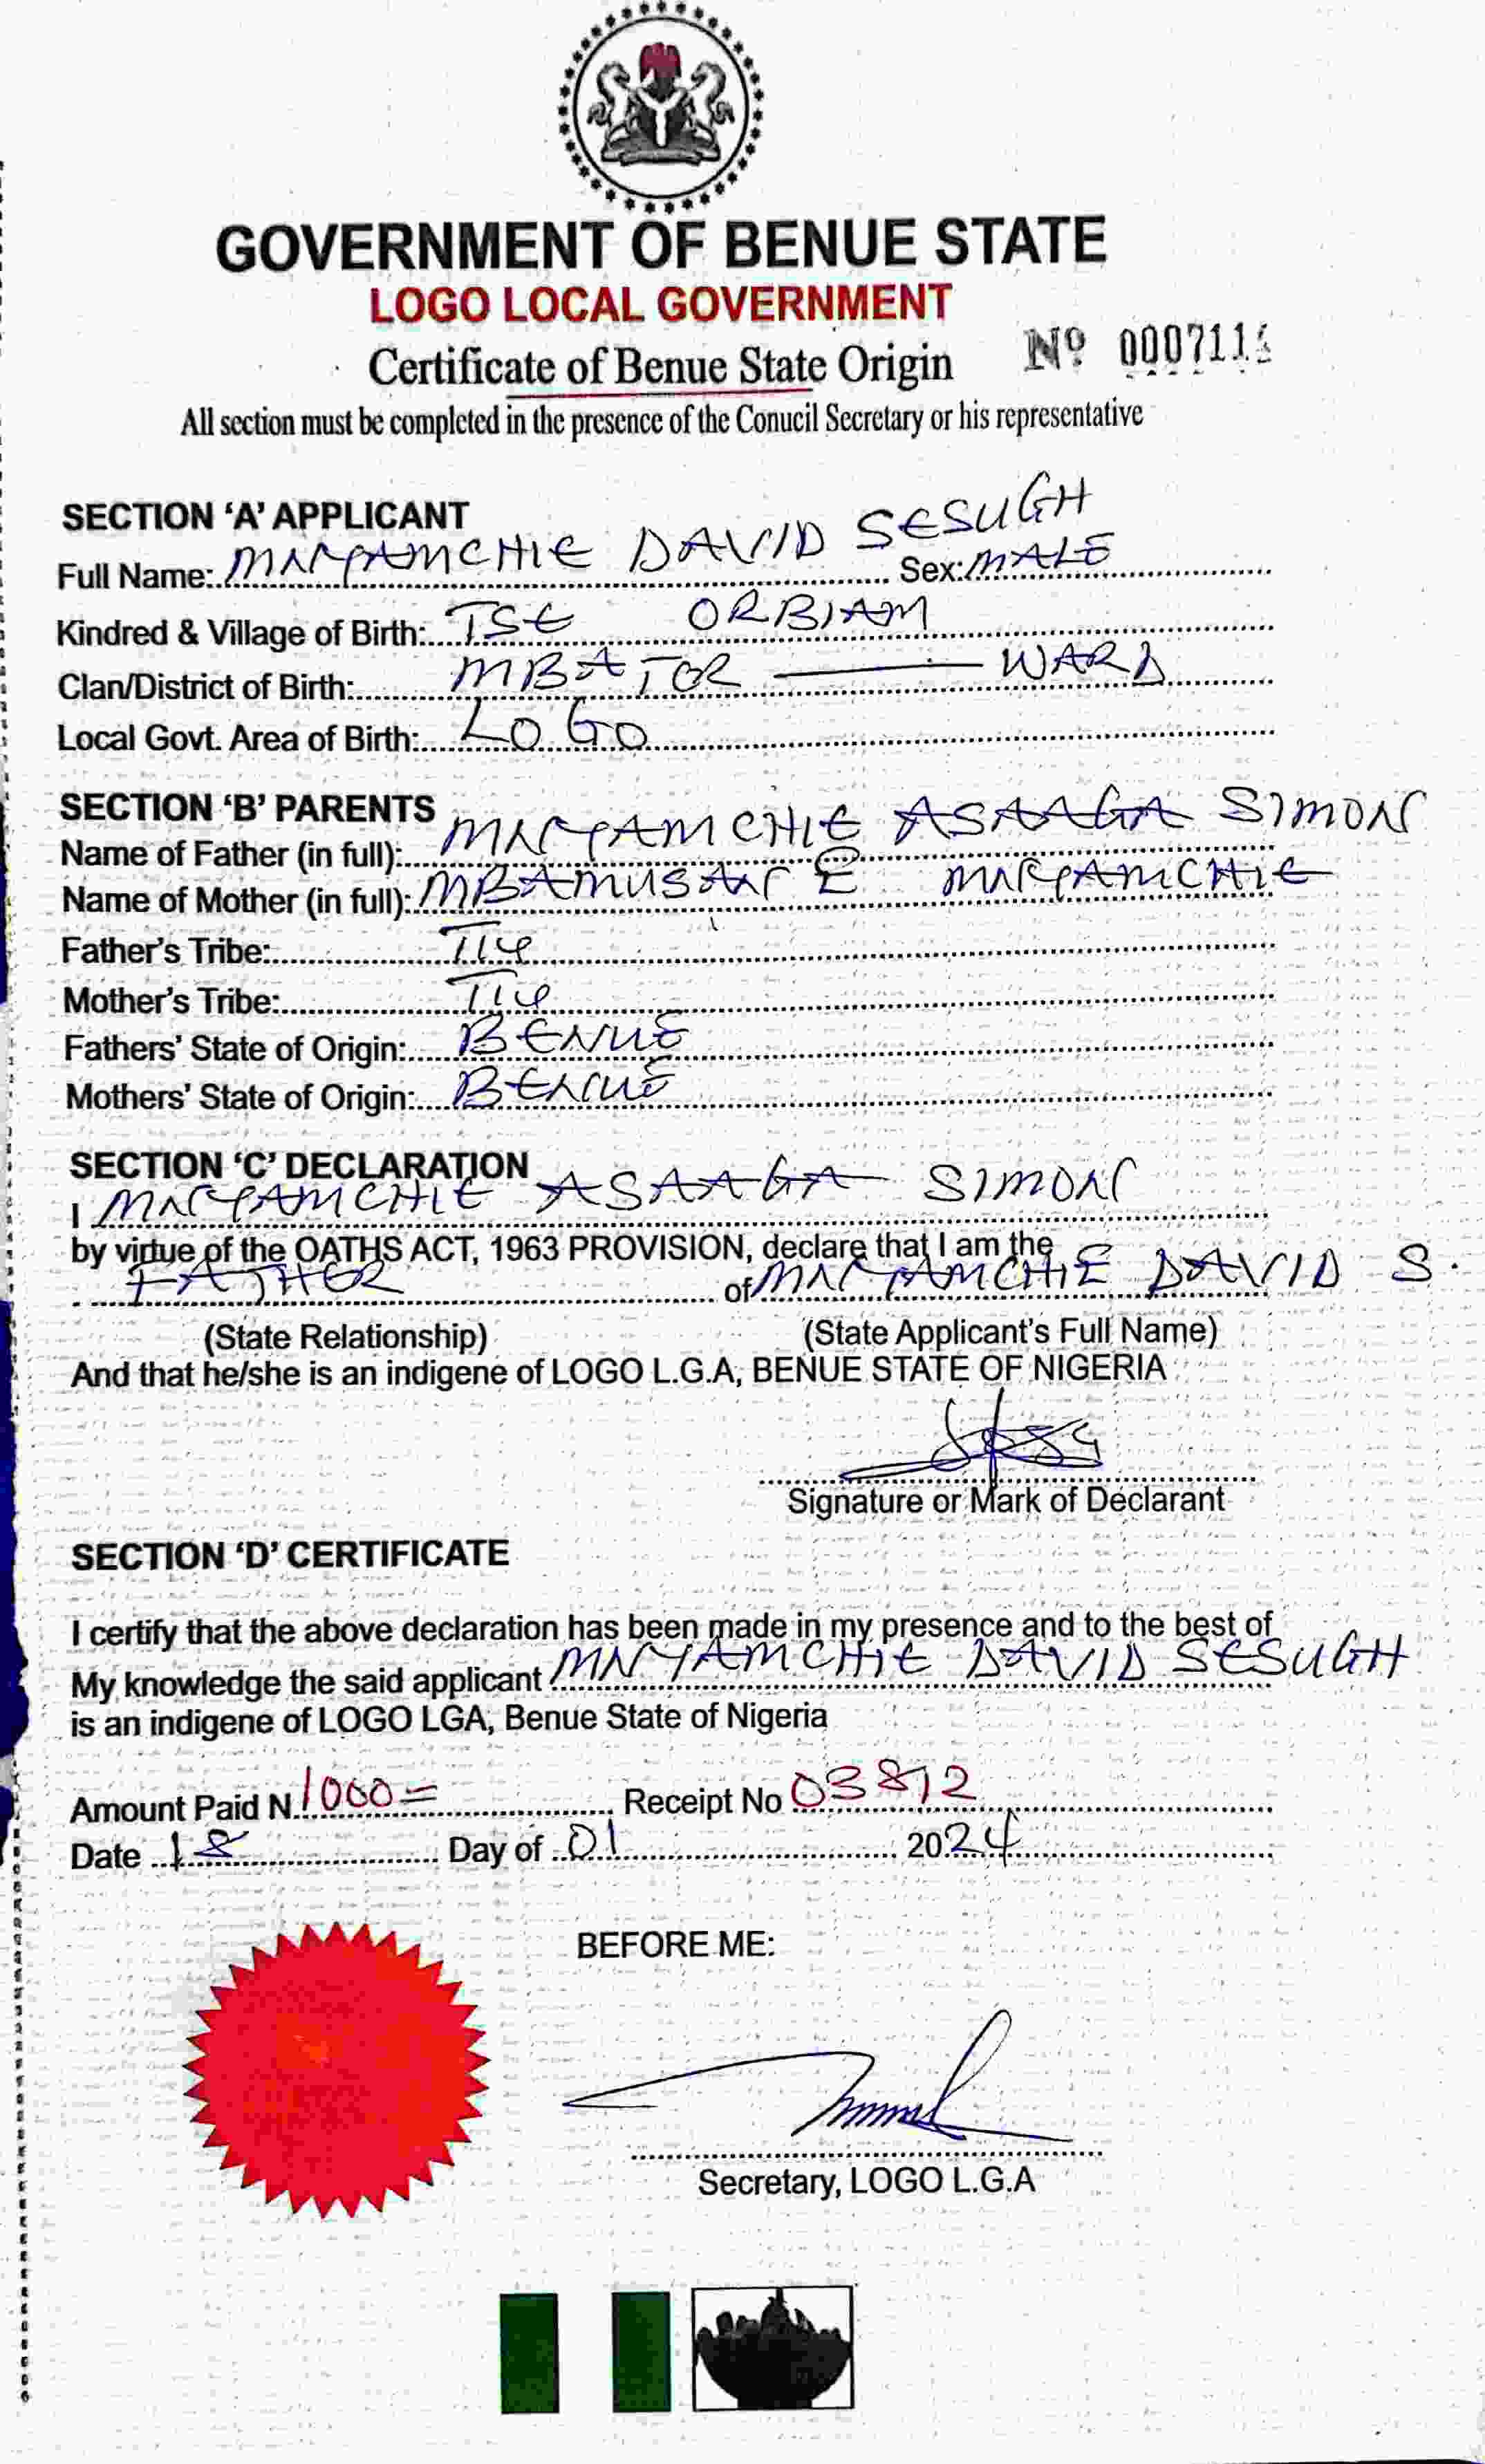 GOVERNMENT OF BENUE STATE
LOGO LOCAL GOVERNMENT
Certificate of Benue State Origin Nº 000711
All section must be completed in the presence of the Conucil Secretary or his representative
SECTION ‘A’ APPLICANT
Full Name: MNYAMCHIE DAVID SESUGH Sex: MALE
Kindred & Village of Birth: TSE ORBIAM
Clan/District of Birth: MBATOR — WARD
Local Govt. Area of Birth: LOGO
SECTION ‘B’ PARENTS
Name of Father (in full): MNYAMCHIE ASAAGA SIMON
Name of Mother (in full): MBAMUSAN E MNYAMCHIE
Father's Tribe: TIV
Mother's Tribe: TIV
Fathers' State of Origin: BENUE
Mothers' State of Origin: BENUE
SECTION ‘C’ DECLARATION
I MNYAMCHIE ASAAGA SIMON
by virtue of the OATHS ACT, 1963 PROVISION, declare that I am the
FATHER of MNYAMCHIE DAVID S.
(State Relationship) (State Applicant's Full Name)
And that he/she is an indigene of LOGO L.G.A, BENUE STATE OF NIGERIA
Signature or Mark of Declarant
SECTION ‘D’ CERTIFICATE
I certify that the above declaration has been made in my presence and to the best of
My knowledge the said applicant MNYAMCHIE DAVID SESUGH
is an indigene of LOGO LGA, Benue State of Nigeria
Amount Paid N 1000= Receipt No 03872
Date 18 Day of 01 2024
BEFORE ME:
Secretary, LOGO L.G.A